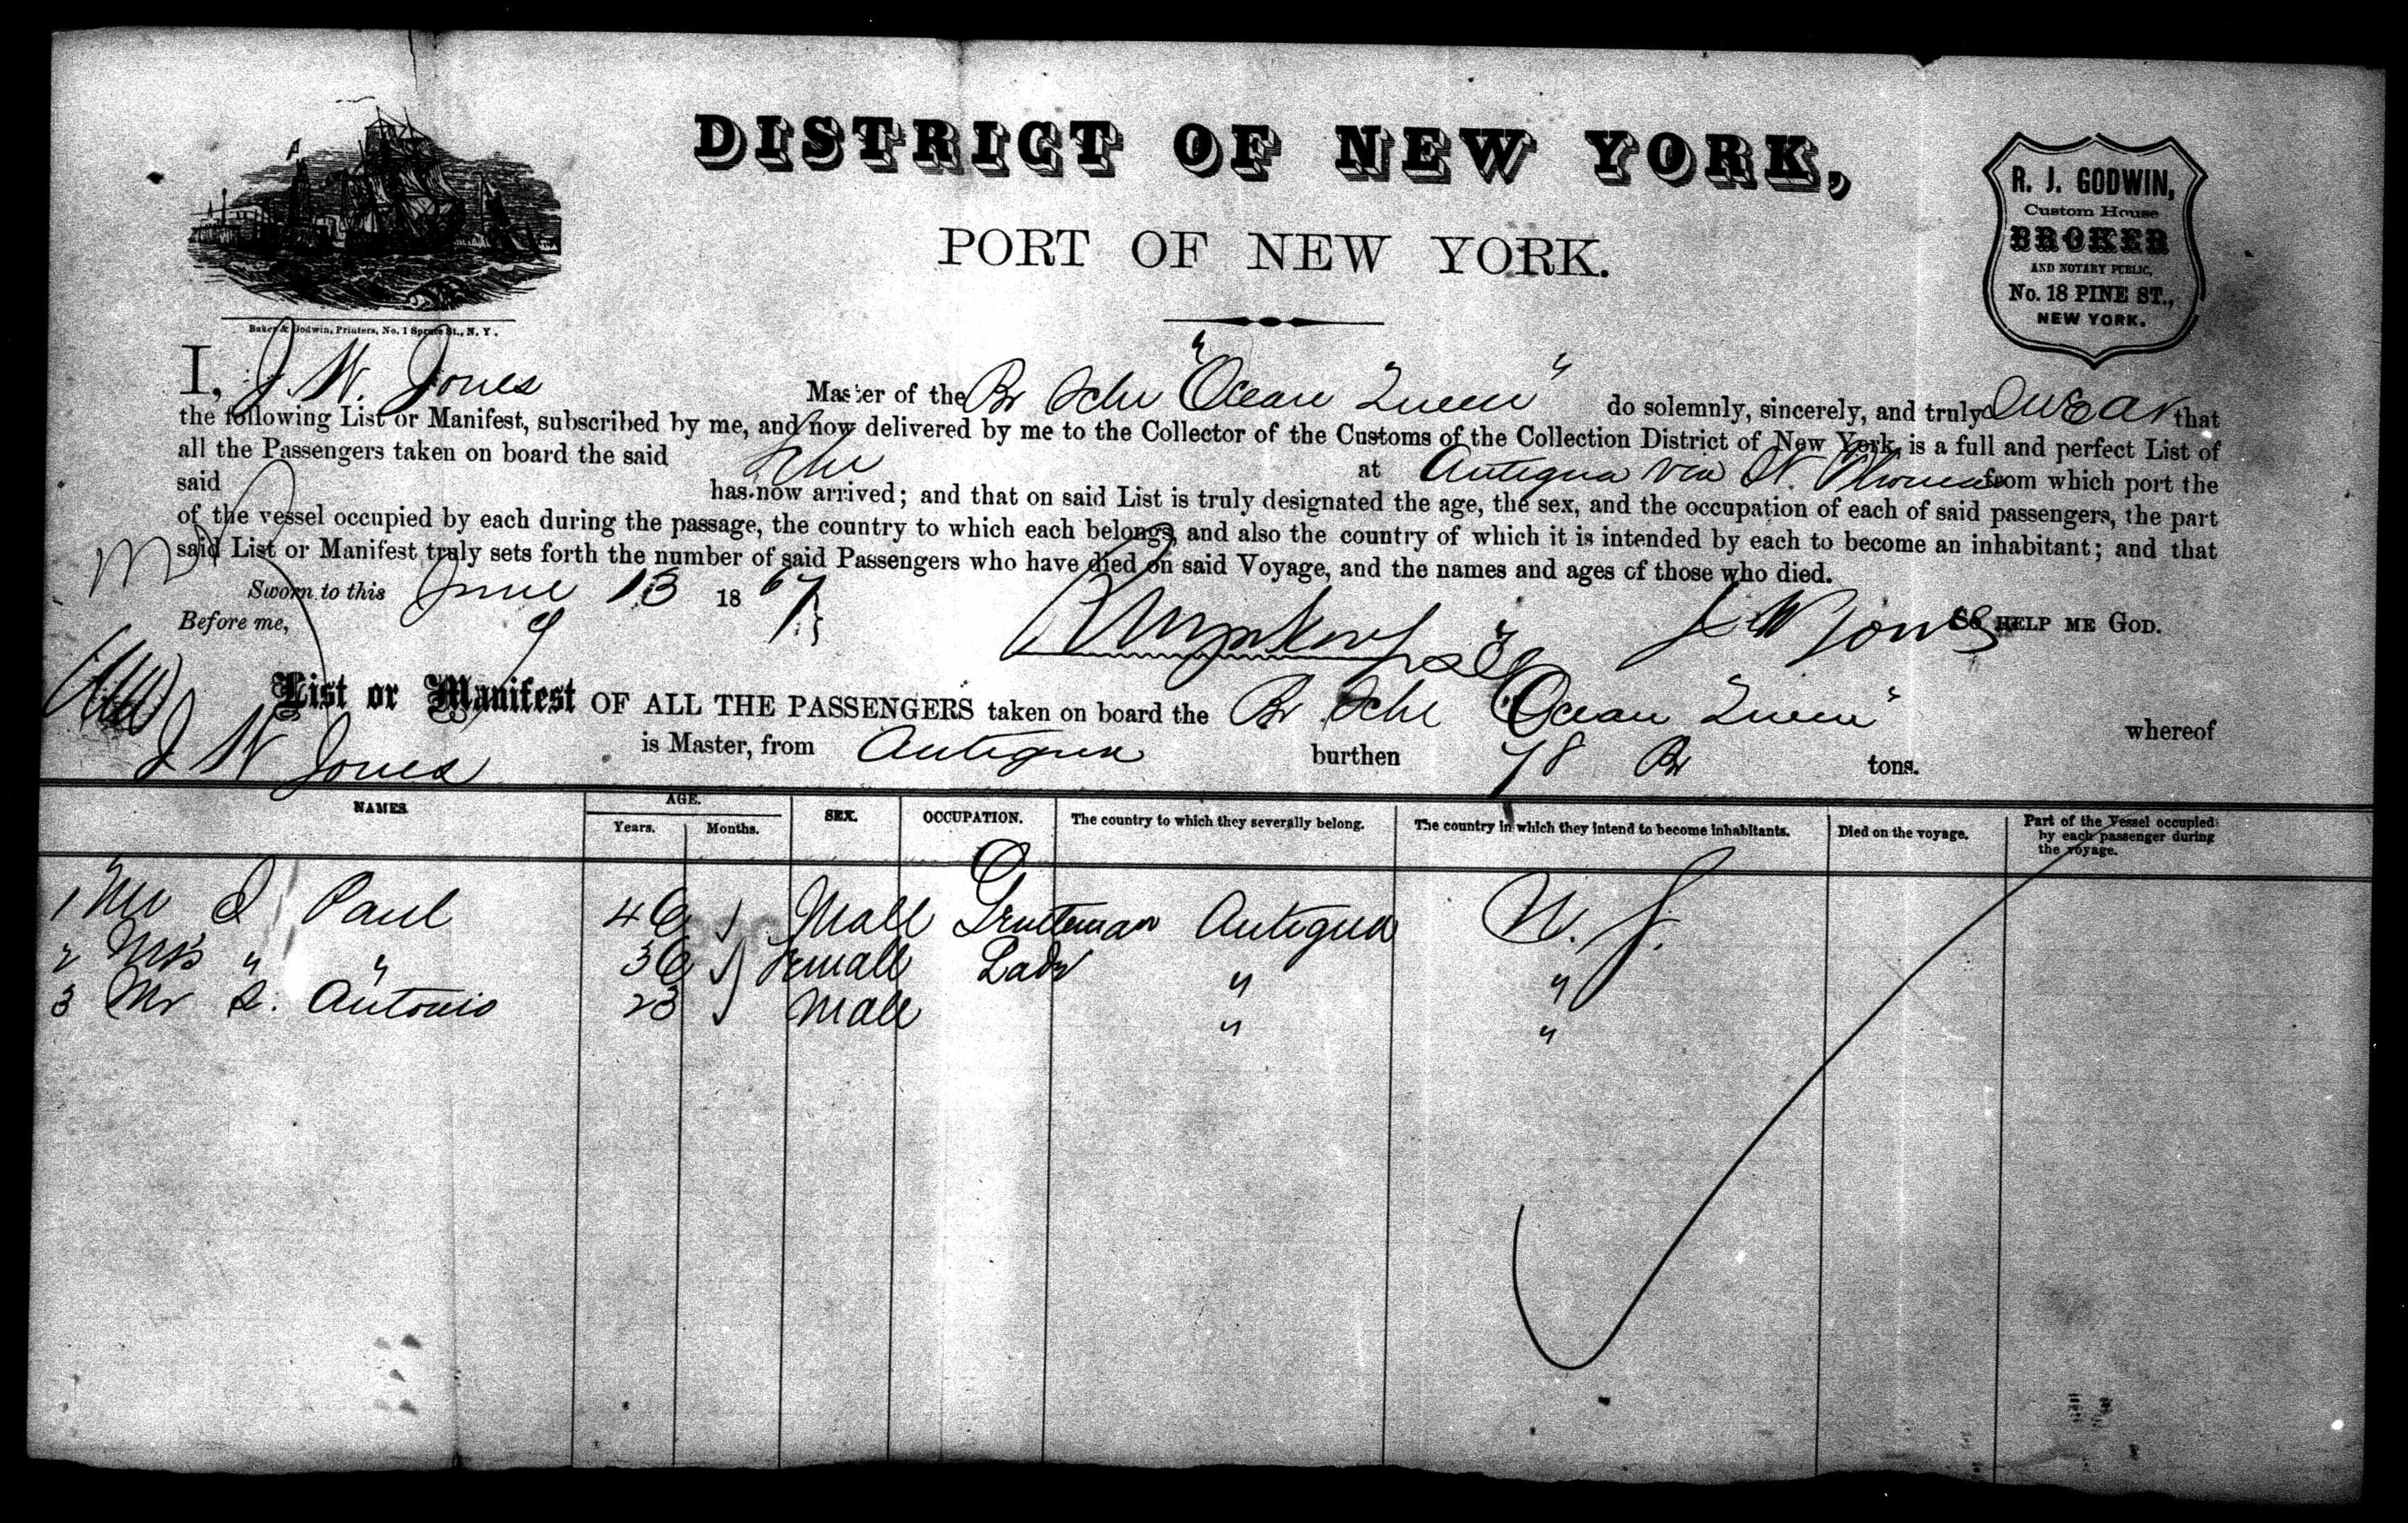 DISTRICT OF NEW YORK,
PORT OF NEW YORK.
R. J. GODWIN,
Custom House
BROKER
AND NOTARY PUBLIC,
No. 18 PINE ST.,
NEW YORK.
Baker & Godwin, Printers, No. 1 Spruce St., N. Y.
I, J. W. Jones Master of the Br Schr "Ocean Queen" do solemnly, sincerely, and truly Swear that
the following List or Manifest, subscribed by me, and now delivered by me to the Collector of the Customs of the Collection District of New York, is a full and perfect List of
all the Passengers taken on board the said Schr at Antigua via St. Thomas from which port the
said has now arrived; and that on said List is truly designated the age, the sex, and the occupation of each of said passengers, the part
of the vessel occupied by each during the passage, the country to which each belongs, and also the country of which it is intended by each to become an inhabitant; and that
said List or Manifest truly sets forth the number of said Passengers who have died on said Voyage, and the names and ages of those who died.
Sworn to this June 13 1867
So HELP ME GOD.
Before me, J W Jones
List or Manifest OF ALL THE PASSENGERS taken on board the Br Schr "Ocean Queen" whereof
J W Jones is Master, from Antigua burthen 78 Br tons.
NAMES AGE. Years. Months. SEX. OCCUPATION. The country to which they severally belong. The country in which they intend to become inhabitants. Died on the voyage. Part of the Vessel occupied by each passenger during the voyage.
1 Mr J Paul 46 Male Gentleman Antigua
2 Mrs " " 36 Female Lady " "
3 Mr S. Antonio 23 Male " "